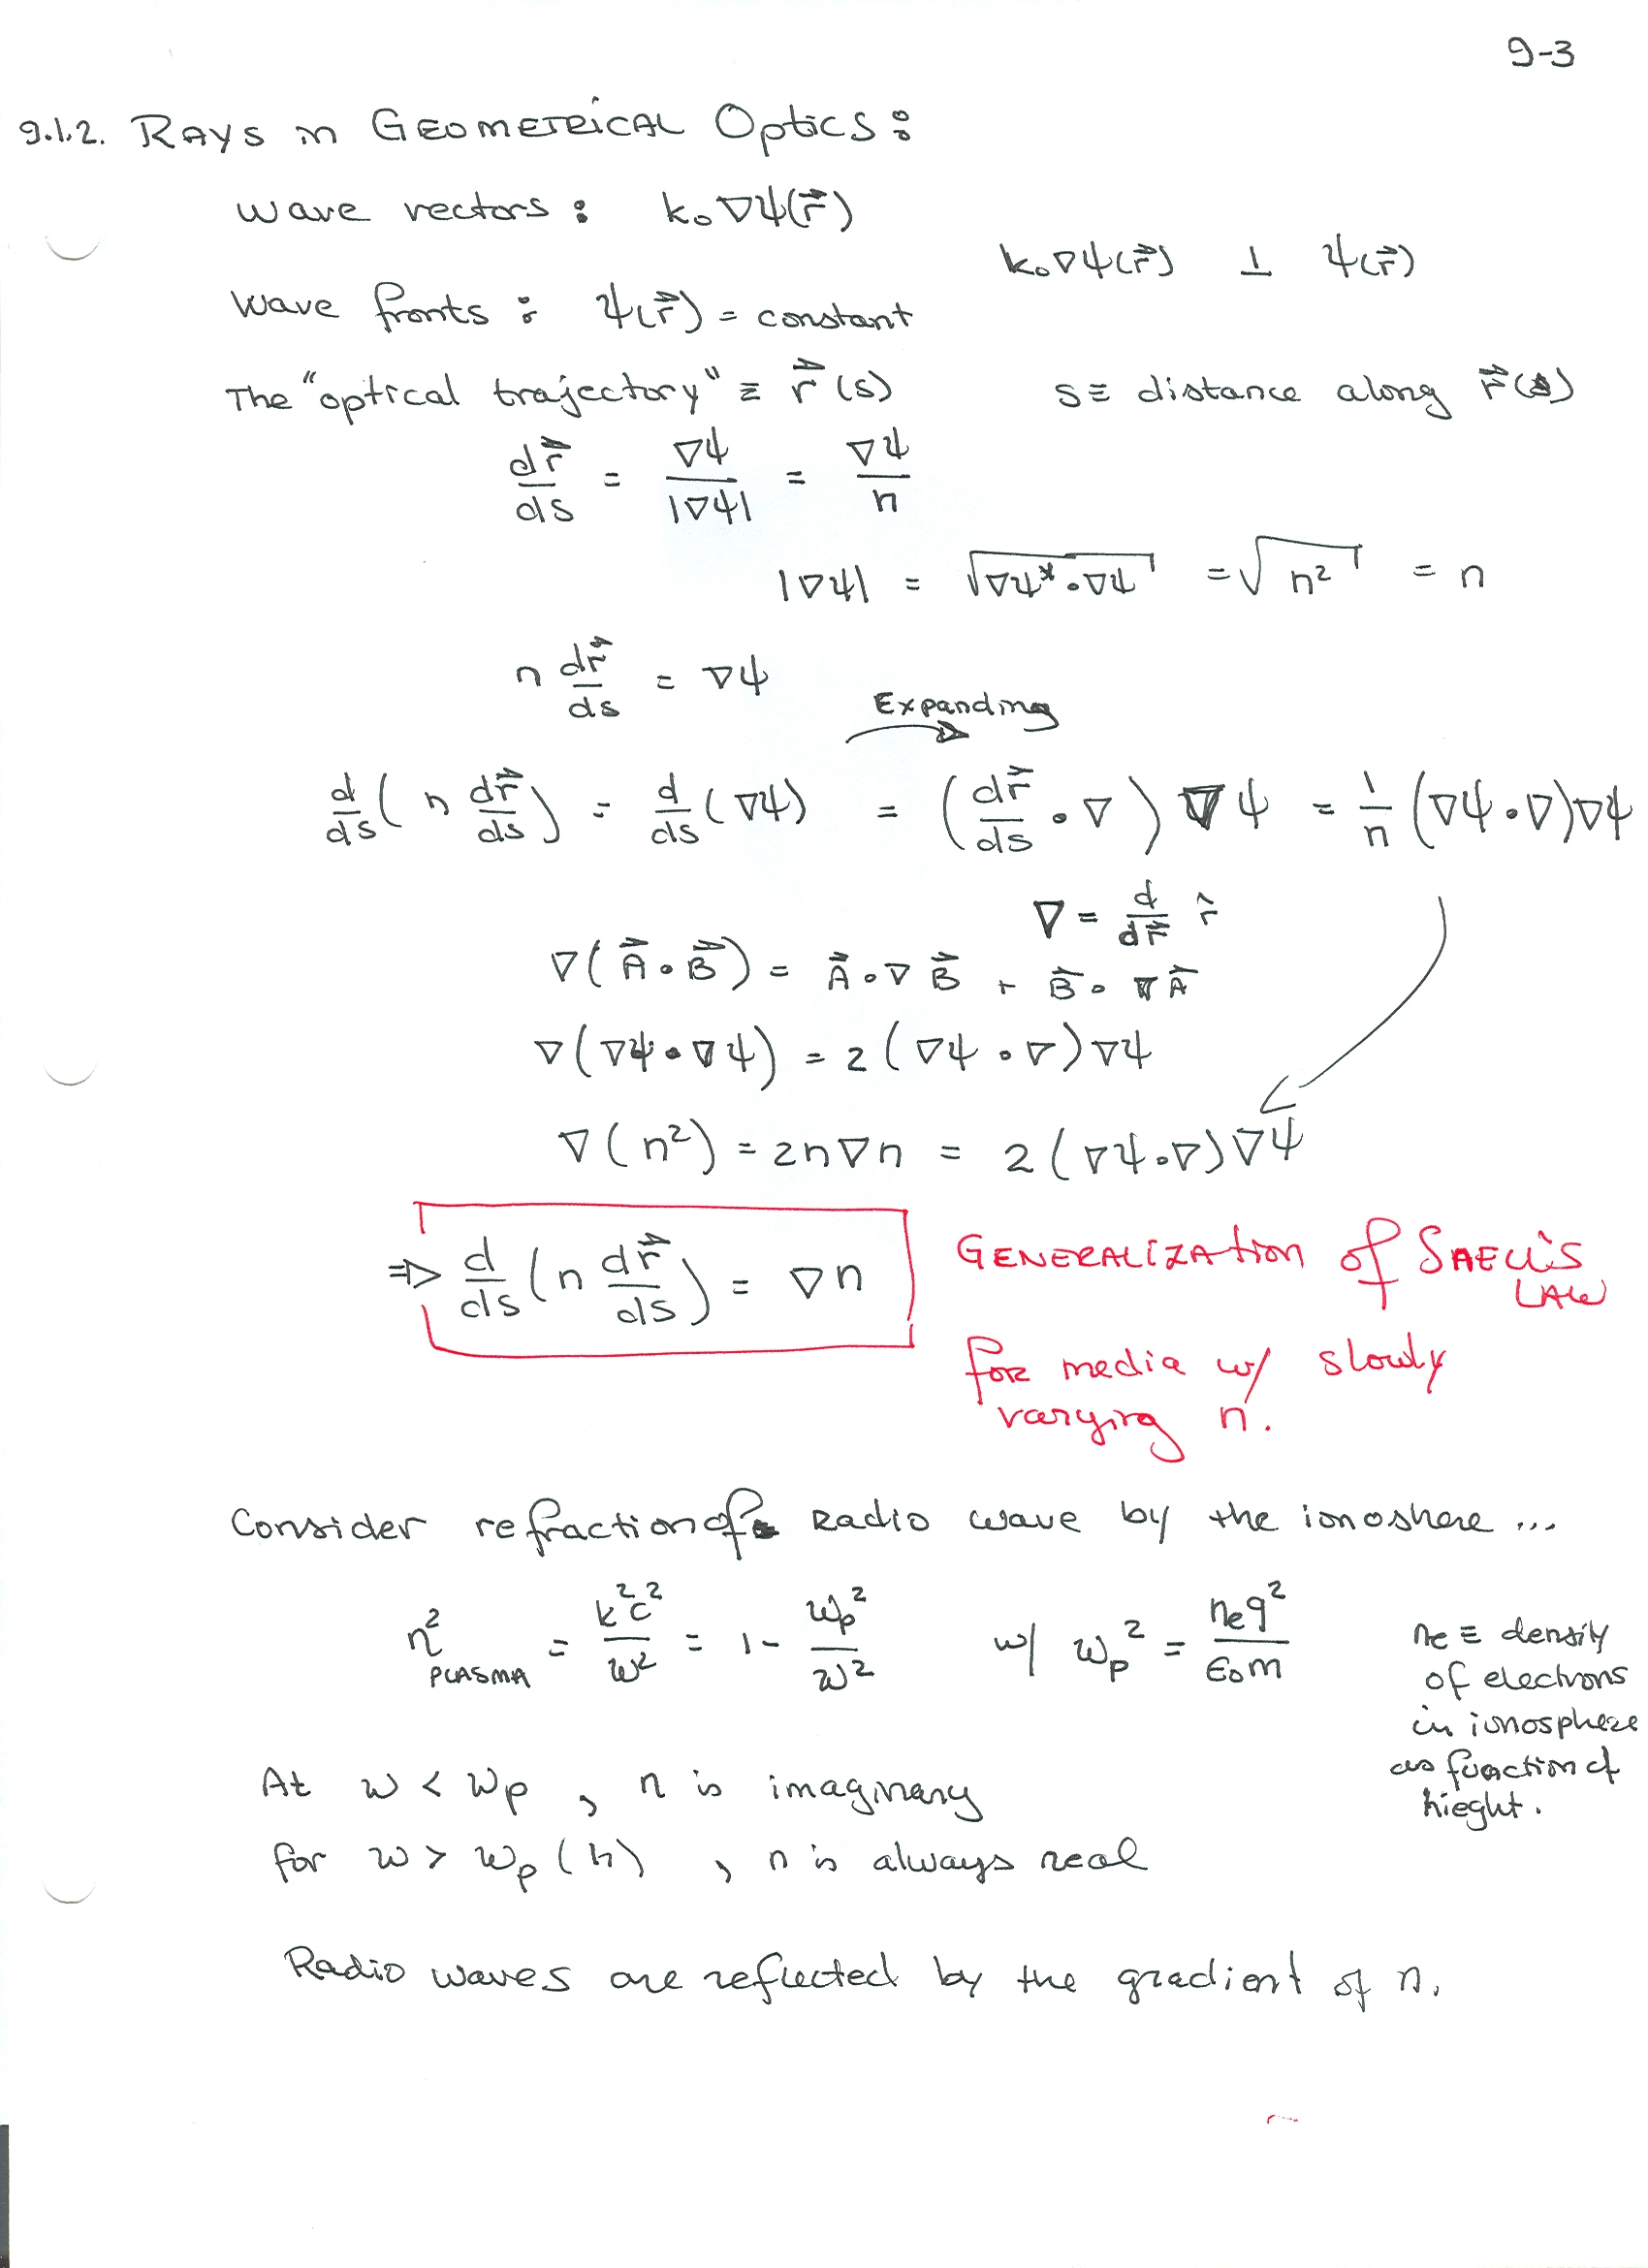 9-3
9.1.2. RAYS in GEOMETRICAL Optics:
wave vectors: k₀∇ψ(r⃗)
k₀∇ψ(r⃗) ⊥ ψ(r⃗)
wave fronts: ψ(r⃗) = constant
The "optical trajectory" ≡ r⃗(s) s ≡ distance along r⃗(s)
dr⃗/ds = ∇ψ/|∇ψ| = ∇ψ/n
|∇ψ| = √(∇ψ*·∇ψ) = √(n²) = n
n dr⃗/ds = ∇ψ
Expanding
d/ds (n dr⃗/ds) = d/ds (∇ψ) = (dr⃗/ds · ∇) ∇ψ = 1/n (∇ψ·∇)∇ψ
∇ = d/dr⃗ r̂
∇(A⃗·B⃗) = A⃗·∇B⃗ + B⃗·∇A⃗
∇(∇ψ·∇ψ) = 2(∇ψ·∇)∇ψ
∇(n²) = 2n∇n = 2(∇ψ·∇)∇ψ
⇒ d/ds (n dr⃗/ds) = ∇n
GENERALIZATION of SNELL'S
LAW
for media w/ slowly
varying n.
Consider refraction of Radio wave by the ionoshere ...
n²PLASMA = k²c²/ω² = 1 - ωp²/ω² w/ ωp² = neq²/ε₀m
ne ≡ density
of electrons
in ionosphere
as function of
hieght.
At ω < ωp, n is imaginary
for ω > ωp(h), n is always real
Radio waves are reflected by the gradient of n.